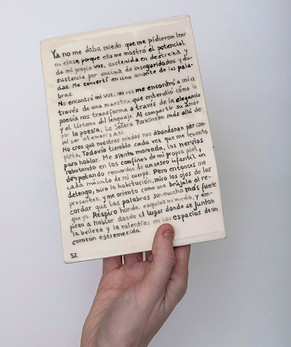 Ya no me daba miedo que me pidieron leer
en clase porque ella me mostró el potencial
de mi propia voz, sostenida en destreza y
sustancia por encima de inseguridades y du-
das. Me convertí en una amante de las pala-
bras.
No encontré mi voz, mi voz me encontró a mí a
través de una maestra que entendió cómo la
poesía nos transforma a través de la elegancia
y el lirismo del lenguaje. Al compartir su amor
por la poesía, la señora Parkinson más allá de
No creo que nuestros miedos nos abandonan por com-
pleto. Todavía tiemblo cada vez que me levanto
para hablar. Me siento mareada, los nervios
rebotando en los confines de mi propia piel,
despertando un
cada músculo de mi cuerpo. Pero entonces me
detengo, miro la habitación, miro los ojos de los
presentes, y me oriento como una brújula al re-
cordar que las palabras son mucho más fuertes
que yo. Respiro hondo, esquivo mi miedo, y em-
piezo a hablar desde el lugar donde se juntan
la belleza y la valentía: en los espacios de un
corazón estremecido.
52